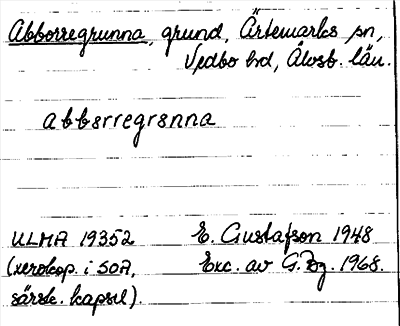 Abborregrunna, grund, Ärtemarks sn,
Vedbo hd, Älvsb. län.
abbørregrønna
ULMA 19352 E. Gustafson 1948
(xerokop. i SOA, Exc. av G. Bg. 1968.
särsk. kapsel).